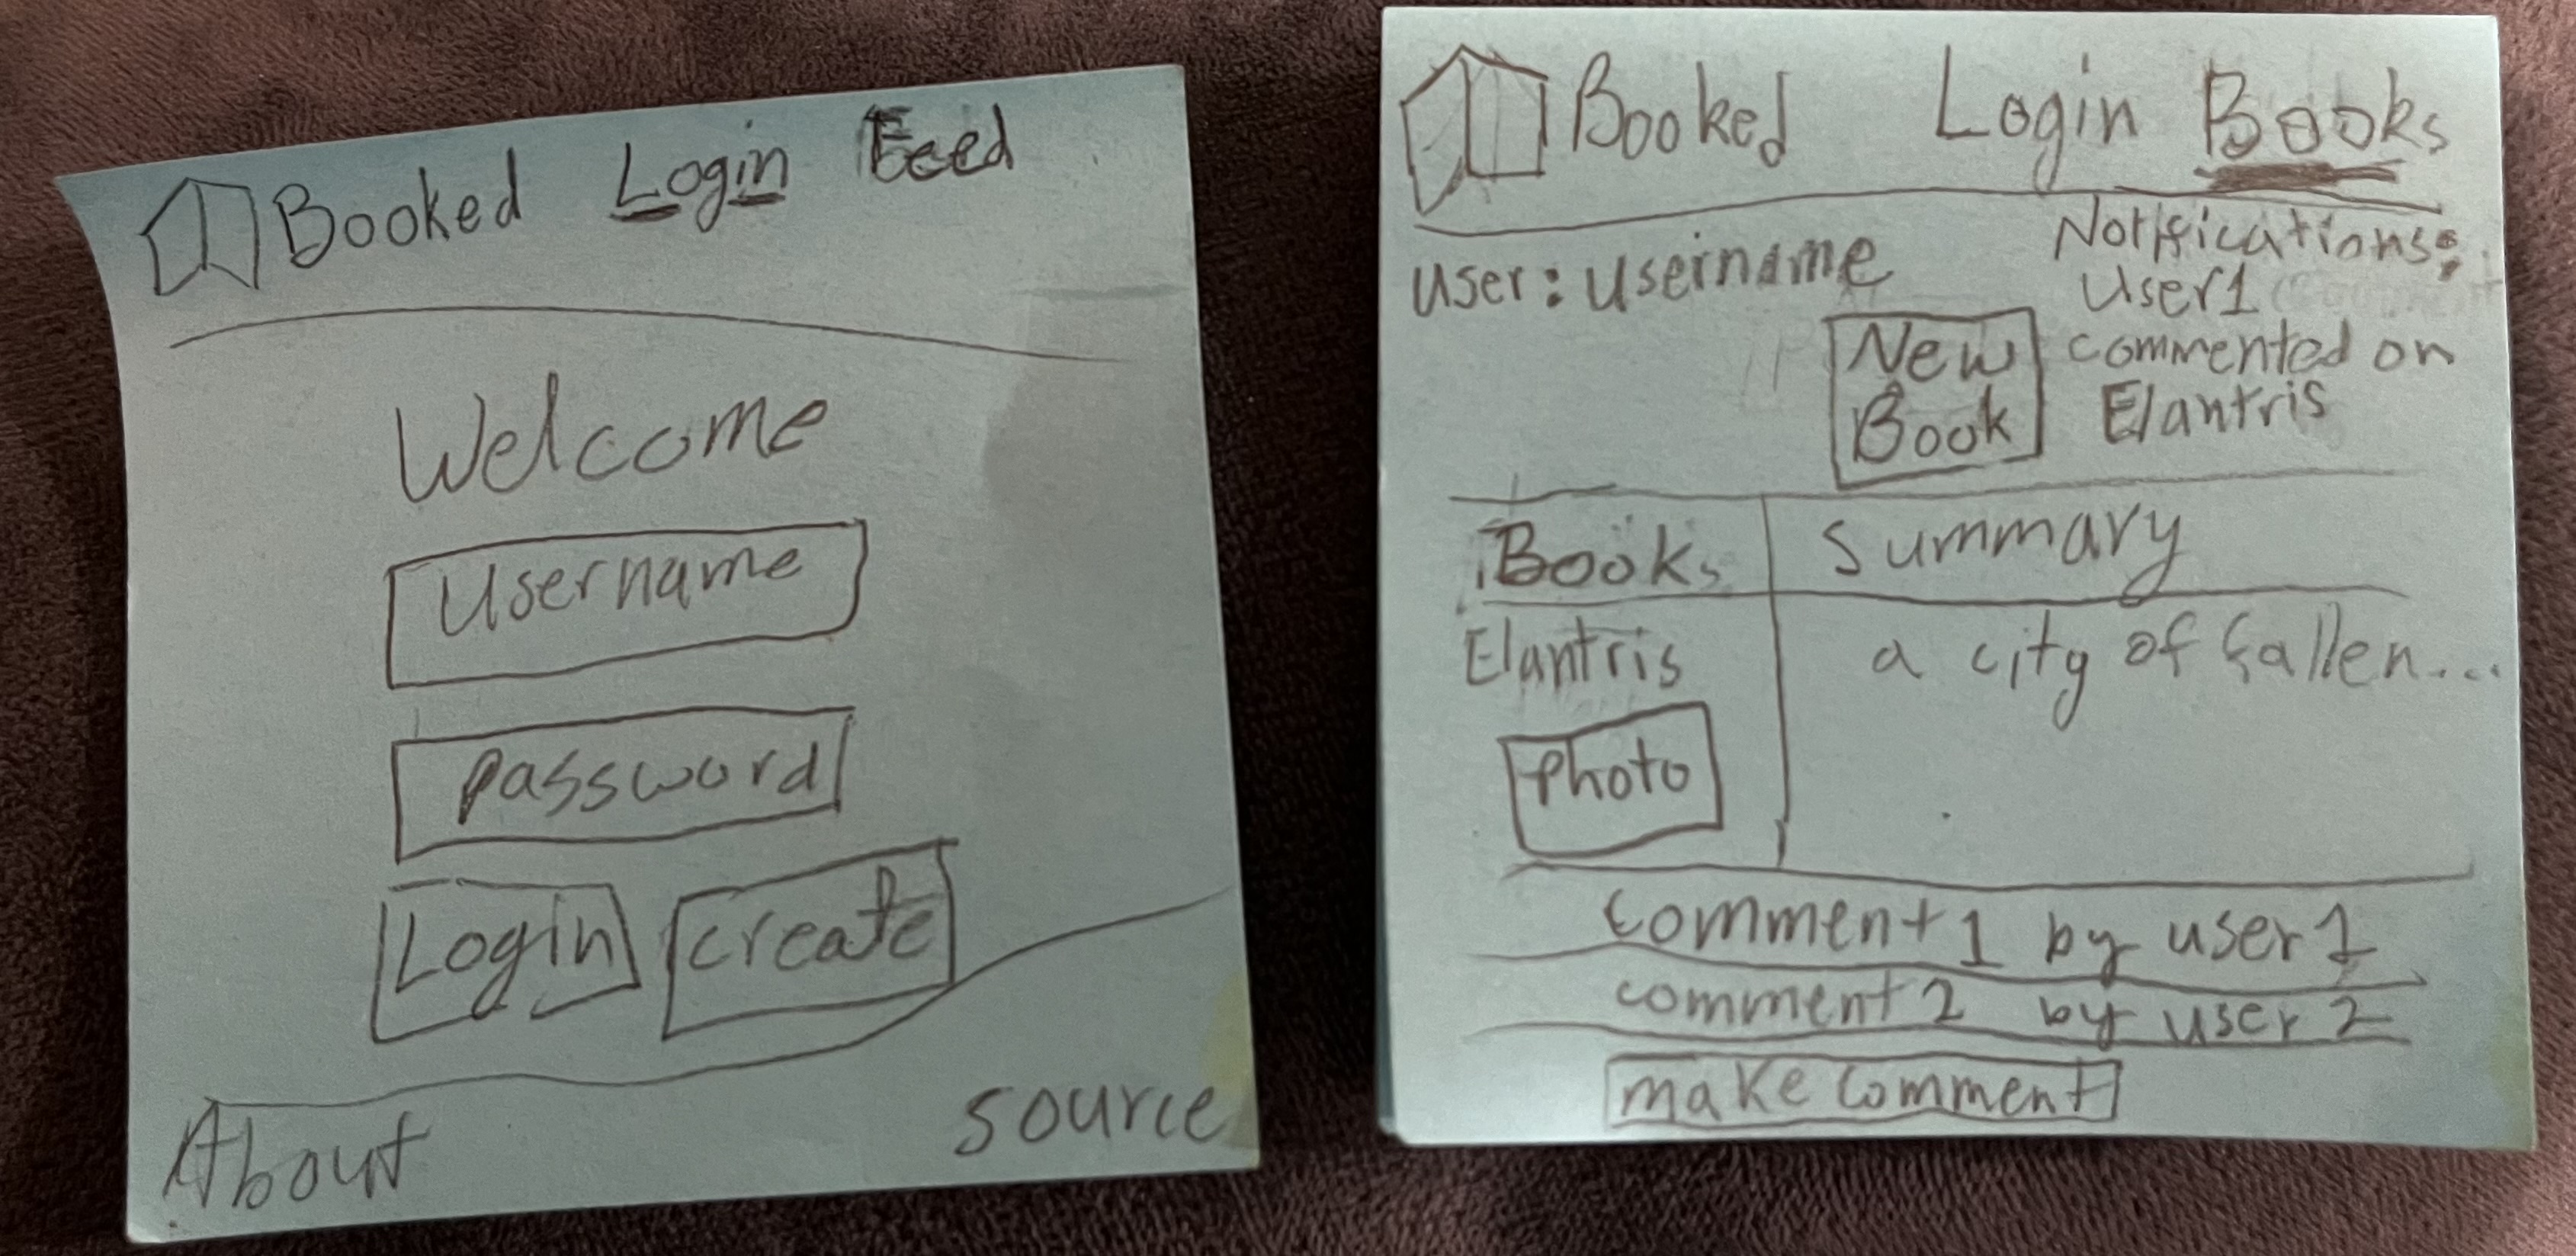 Booked Login Feed
Welcome
Username
password
Login create
About source
Booked Login Books
User: Username
Notifications:
User1
commented on
Elantris
New
Book
Books Summary
Elantris a city of fallen...
photo
comment 1 by user 1
comment 2 by user 2
make comment